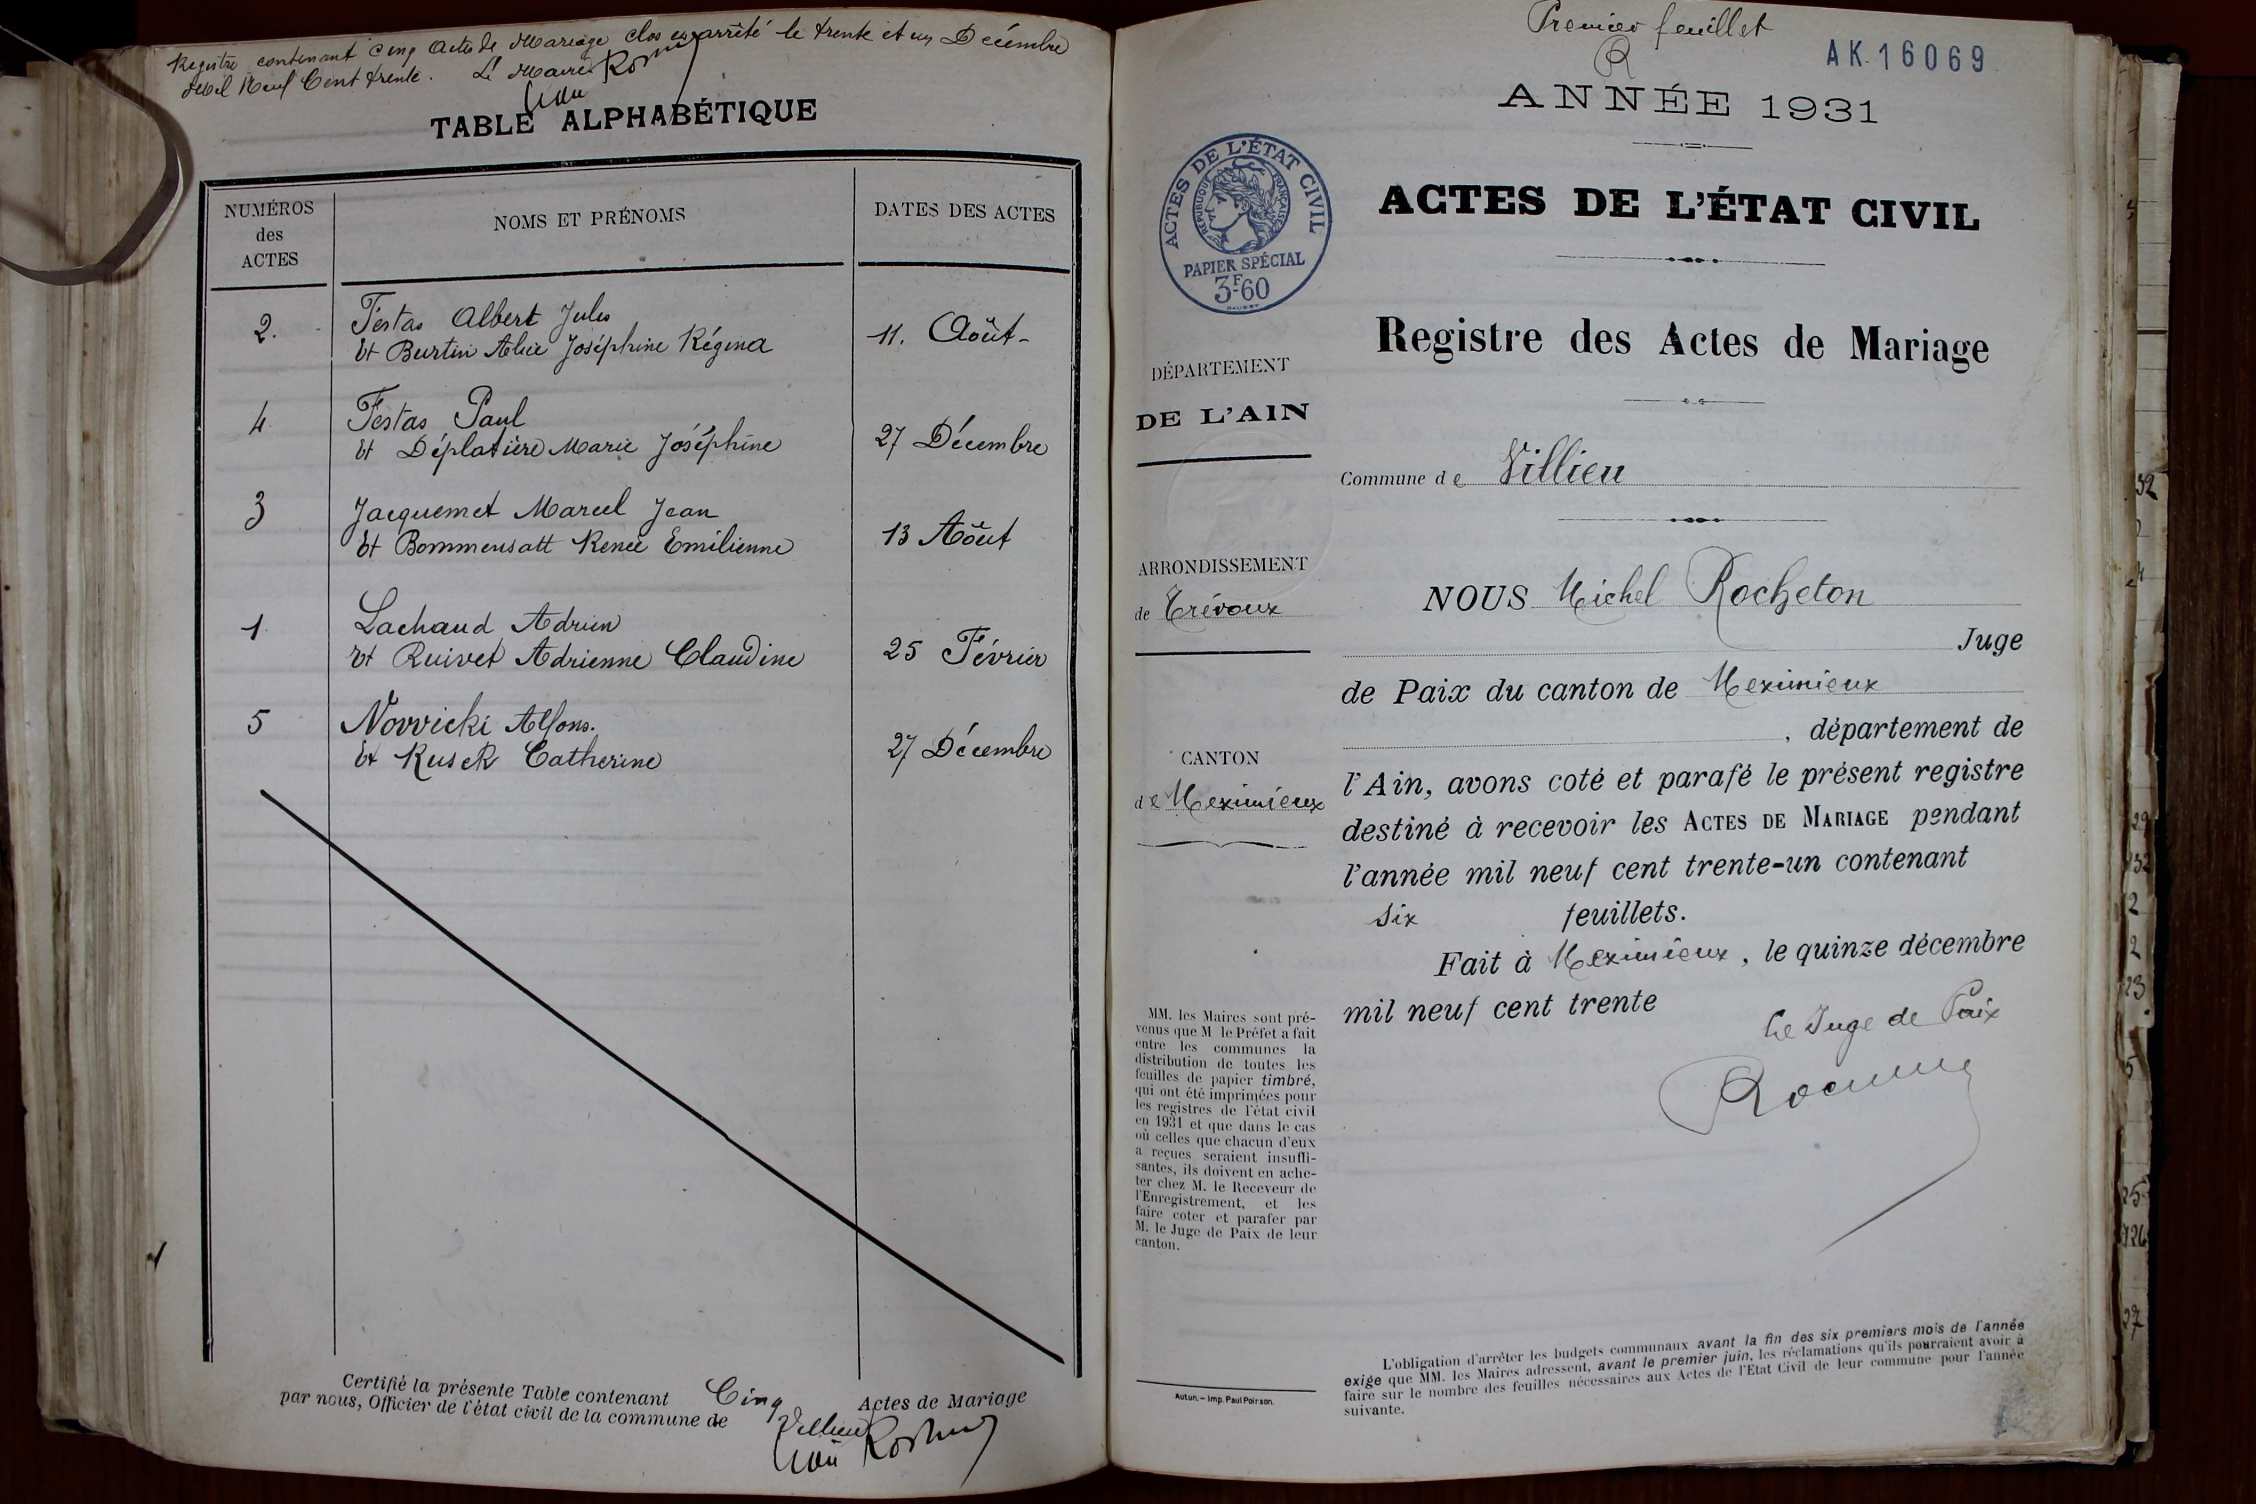 Registre contenant cinq Actes de Mariage clos et arrêté le trente et un Décembre
Mil Neuf Cent trente. Le Maire
TABLE ALPHABÉTIQUE
NUMÉROS
des
ACTES
NOMS ET PRÉNOMS
DATES DES ACTES
2.
Festas Albert Jules
Et Burtin Alice Joséphine Régina
11. Août -
4
Festas Paul
Et Déplatière Marie Joséphine
27 Décembre
3
Jacquemet Marcel Jean
Et Bommensatt Renée Emilienne
13 Août
1
Lachaud Adrien
Et Ruivet Adrienne Claudine
25 Février
5
Novvicki Alfons.
Et Kusek Catherine
27 Décembre
Certifié la présente Table contenant Cinq Actes de Mariage
par nous, Officier de l'état civil de la commune de Villieu
Premier feuillet
R
AK.16069
ANNÉE 1931
ACTES DE L'ÉTAT CIVIL
RÉPUBLIQUE FRANÇAISE
PAPIER SPÉCIAL
3F.60
ACTES DE L'ÉTAT CIVIL
Registre des Actes de Mariage
DÉPARTEMENT
DE L'AIN
Commune de Villieu
ARRONDISSEMENT
de Trévoux
CANTON
de Meximieux
NOUS Michel Rocheton
Juge
de Paix du canton de Meximieux
, département de
l'Ain, avons coté et parafé le présent registre
destiné à recevoir les ACTES DE MARIAGE pendant
l'année mil neuf cent trente-un contenant
six feuillets.
Fait à Meximieux, le quinze décembre
mil neuf cent trente
Le Juge de Paix
MM. les Maires sont pré-
venus que M le Préfet a fait
entre les communes la
distribution de toutes les
feuilles de papier timbré,
qui ont été imprimées pour
les registres de l'état civil
en 1931 et que dans le cas
où celles que chacun d'eux
a reçues seraient insuffi-
santes, ils doivent en ache-
ter chez M. le Receveur de
l'Enregistrement, et les
faire coter et parafer par
M. le Juge de Paix de leur
canton.
Autun. – Imp. Paul Poirson.
L'obligation d'arrêter les budgets communaux avant la fin des six premiers mois de l'année
exige que MM. les Maires adressent, avant le premier juin, les réclamations qu'ils pourraient avoir à
faire sur le nombre des feuilles nécessaires aux Actes de l'Etat Civil de leur commune pour l'année
suivante.